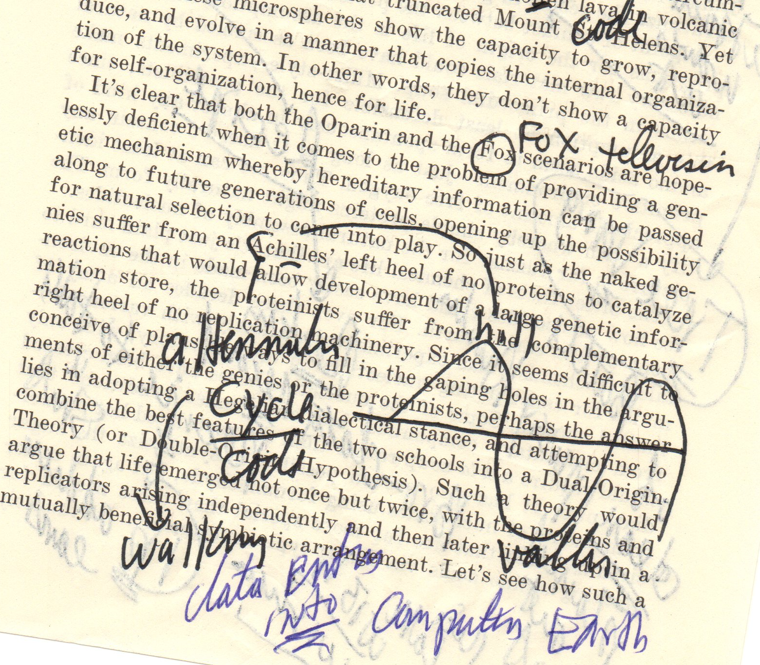 truncated Mount St. Helens. Yet
these microspheres show the capacity to grow, repro-
duce, and evolve in a manner that copies the internal organiza-
tion of the system. In other words, they don't show a capacity
for self-organization, hence for life.
It's clear that both the Oparin and the Fox scenarios are hope-
lessly deficient when it comes to the problem of providing a gen-
etic mechanism whereby hereditary information can be passed
along to future generations of cells, opening up the possibility
for natural selection to come into play. So just as the naked ge-
nies suffer from an Achilles' left heel of no proteins to catalyze
reactions that would allow development of a large genetic infor-
mation store, the proteinists suffer from the complementary
right heel of no replication machinery. Since it seems difficult to
conceive of ways to fill in the gaping holes in the argu-
ments of either the genies or the proteinists, perhaps the answer
lies in adopting a Hegelian dialectical stance, and attempting to
combine the best features of the two schools into a Dual-Origin
Theory (or Double-Origin Hypothesis). Such a theory would
argue that life emerged not once but twice, with the proteins and
replicators arising independently and then later in a
mutually beneficial symbiotic arrangement. Let's see how such a
code
Fox television
hill
Cycle
Code
walking
valley
data entry
into Computer Earth